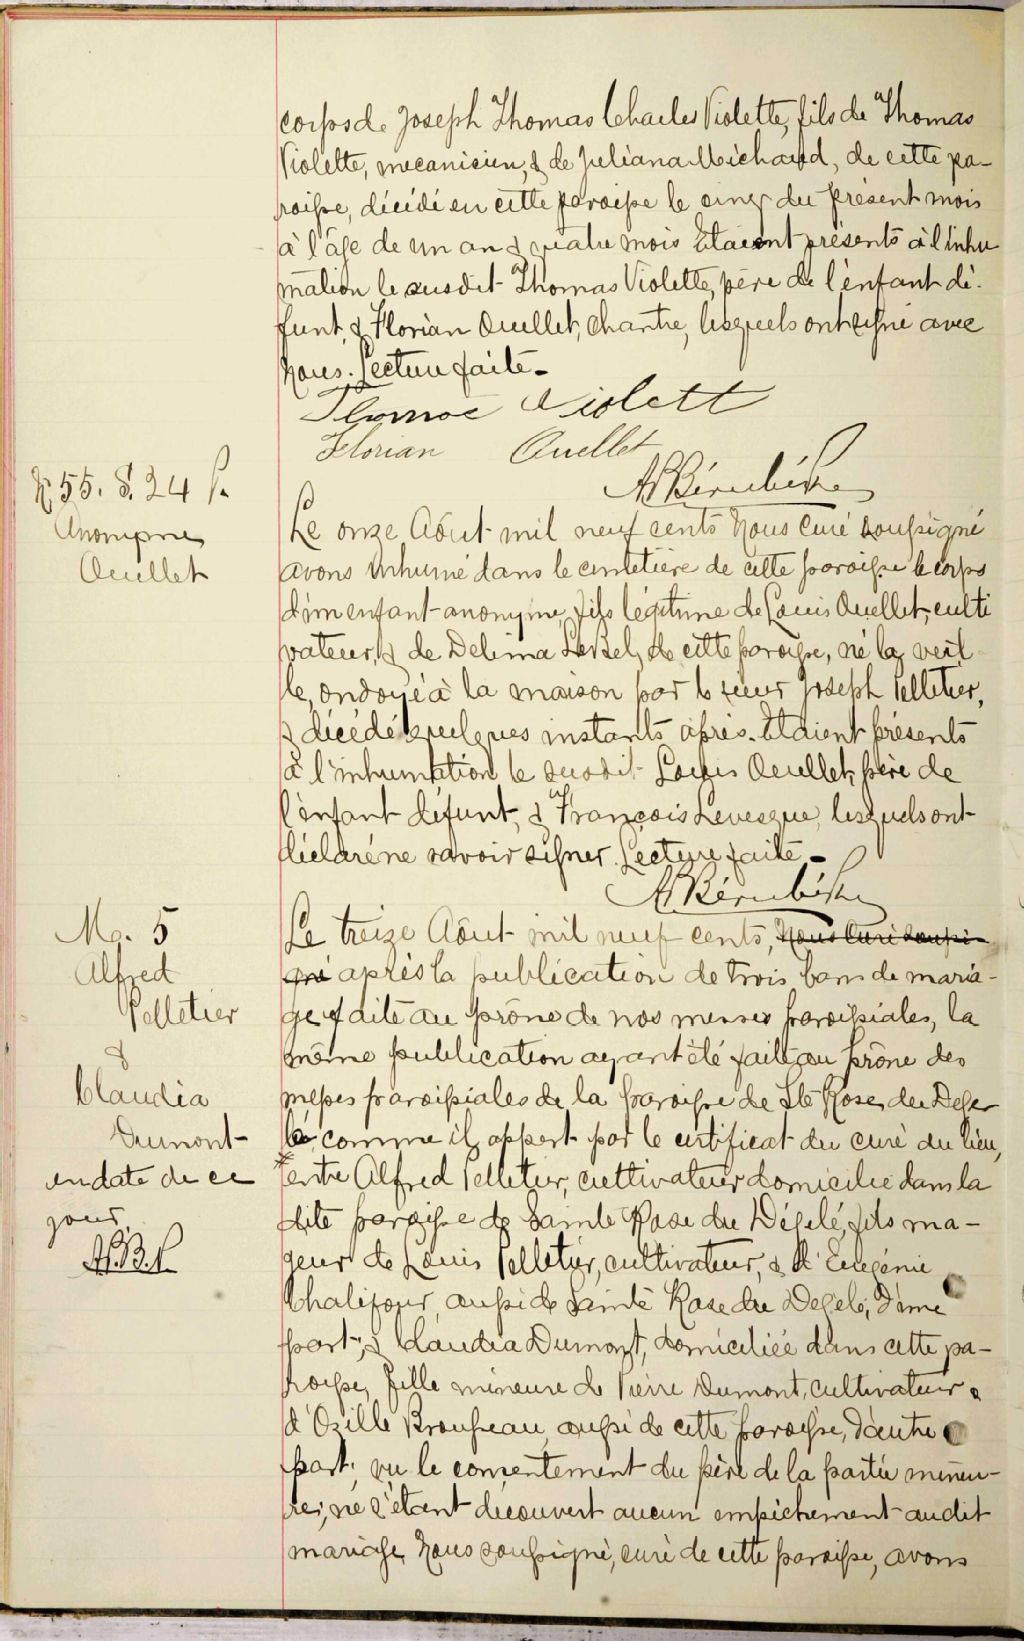 corps de Joseph Thomas Charles Violette, fils de Thomas
Violette, mecanicien, & de Juliana Michaud, de cette pa-
roisse, décédé en cette paroisse le cinq du présent mois
à l'âge de un an & quatre mois Etaient présents à l'inhu
mation le susdit Thomas Violette, père de l'enfant dé-
funt, & Florian Ouellet, chantre, lesquels ont signé avec
nous. Lecture faite -
Thomas Violett
Florian Ouellet
N 55. S. 24 P.
Anonyme
Ouellet
Le onze Août mil neuf cents Nous Curé soussigné
avons inhumé dans le cimetière de cette paroisse le corps
d'un enfant anonyme, fils légitime de Louis Ouellet, culti
vateur, & de Delima LeBel, de cette paroisse, né la veil
le, ondoyé à la maison par le sieur Joseph Pelletier,
& décédé quelques instants après. Etaient présents
à l'inhumation le susdit Louis Ouellet, père de
l'enfant défunt, & François Levesque, lesquels ont
déclaré ne savoir signer. Lecture faite -
M. 5
Alfred
Pelletier
&
Claudia
Dumont
en date de ce
jour,
Le treize Août mil neuf cents, Nous Curé soussi-
gné après la publication de trois bans de maria-
ge faite au prône de nos messes paroissiales, la
même publication ayant été faite au prône des
messes paroissiales de la paroisse de Ste Rose du Deger
lé comme il appert par le certificat du curé du lieu,
entre Alfred Pelletier, cultivateur domicilié dans la
dite paroisse de Sainte Rose du Dégelé, fils ma-
jeur de Louis Pelletier, cultivateur, & d'Eugénie
Chalifour, aussi de Sainte Rose du Degelé, d'une
part, & Claudia Dumont, domiciliée dans cette pa-
roisse, fille mineure de Pierre Dumont, cultivateur &
d'Ozille Brousseau, aussi de cette paroisse, d'autre
part, vu le consentement du père de la partie mineu-
re, ne s'étant découvert aucun empêchement au dit
mariage Nous soussigné, curé de cette paroisse, avons